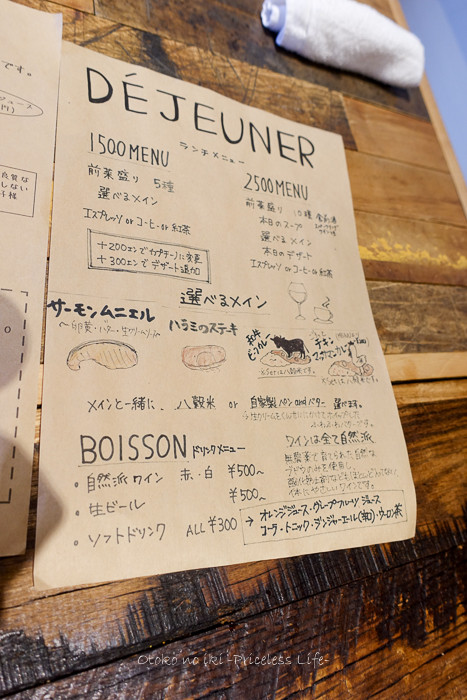 です。
DÉJEUNER
ランチメニュー
1500MENU
前菜盛り 5種
選べるメイン
エスプレッソ or コーヒー or 紅茶
+200エンでカプチーノに変更
+300エンでデザート追加
2500MENU
前菜盛り 10種
本日のスープ
選べるメイン
本日のデザート
エスプレッソ or コーヒー or 紅茶
選べるメイン
サーモンムニエル
〜卵黄・バター・生クリーム〜
ハラミのステキ
チキン
メインと一緒に、八穀米 or 自家製パン and バター 選べます。
ふわふわバターです。
BOISSON ドリンクメニュー
・自然派ワイン 赤・白 ¥500~
・生ビール ¥500~
・ソフトドリンク ALL ¥300
→ オレンジジュース・グレープフルーツジュース
コーラ・トニック・ジンジャーエール(和)・ウーロン茶
ワインは全て自然派
無農薬で育てられた自然な
ブドウのみを使用し
体にやさしいワインです。
Otoko no iki -Priceless Life-